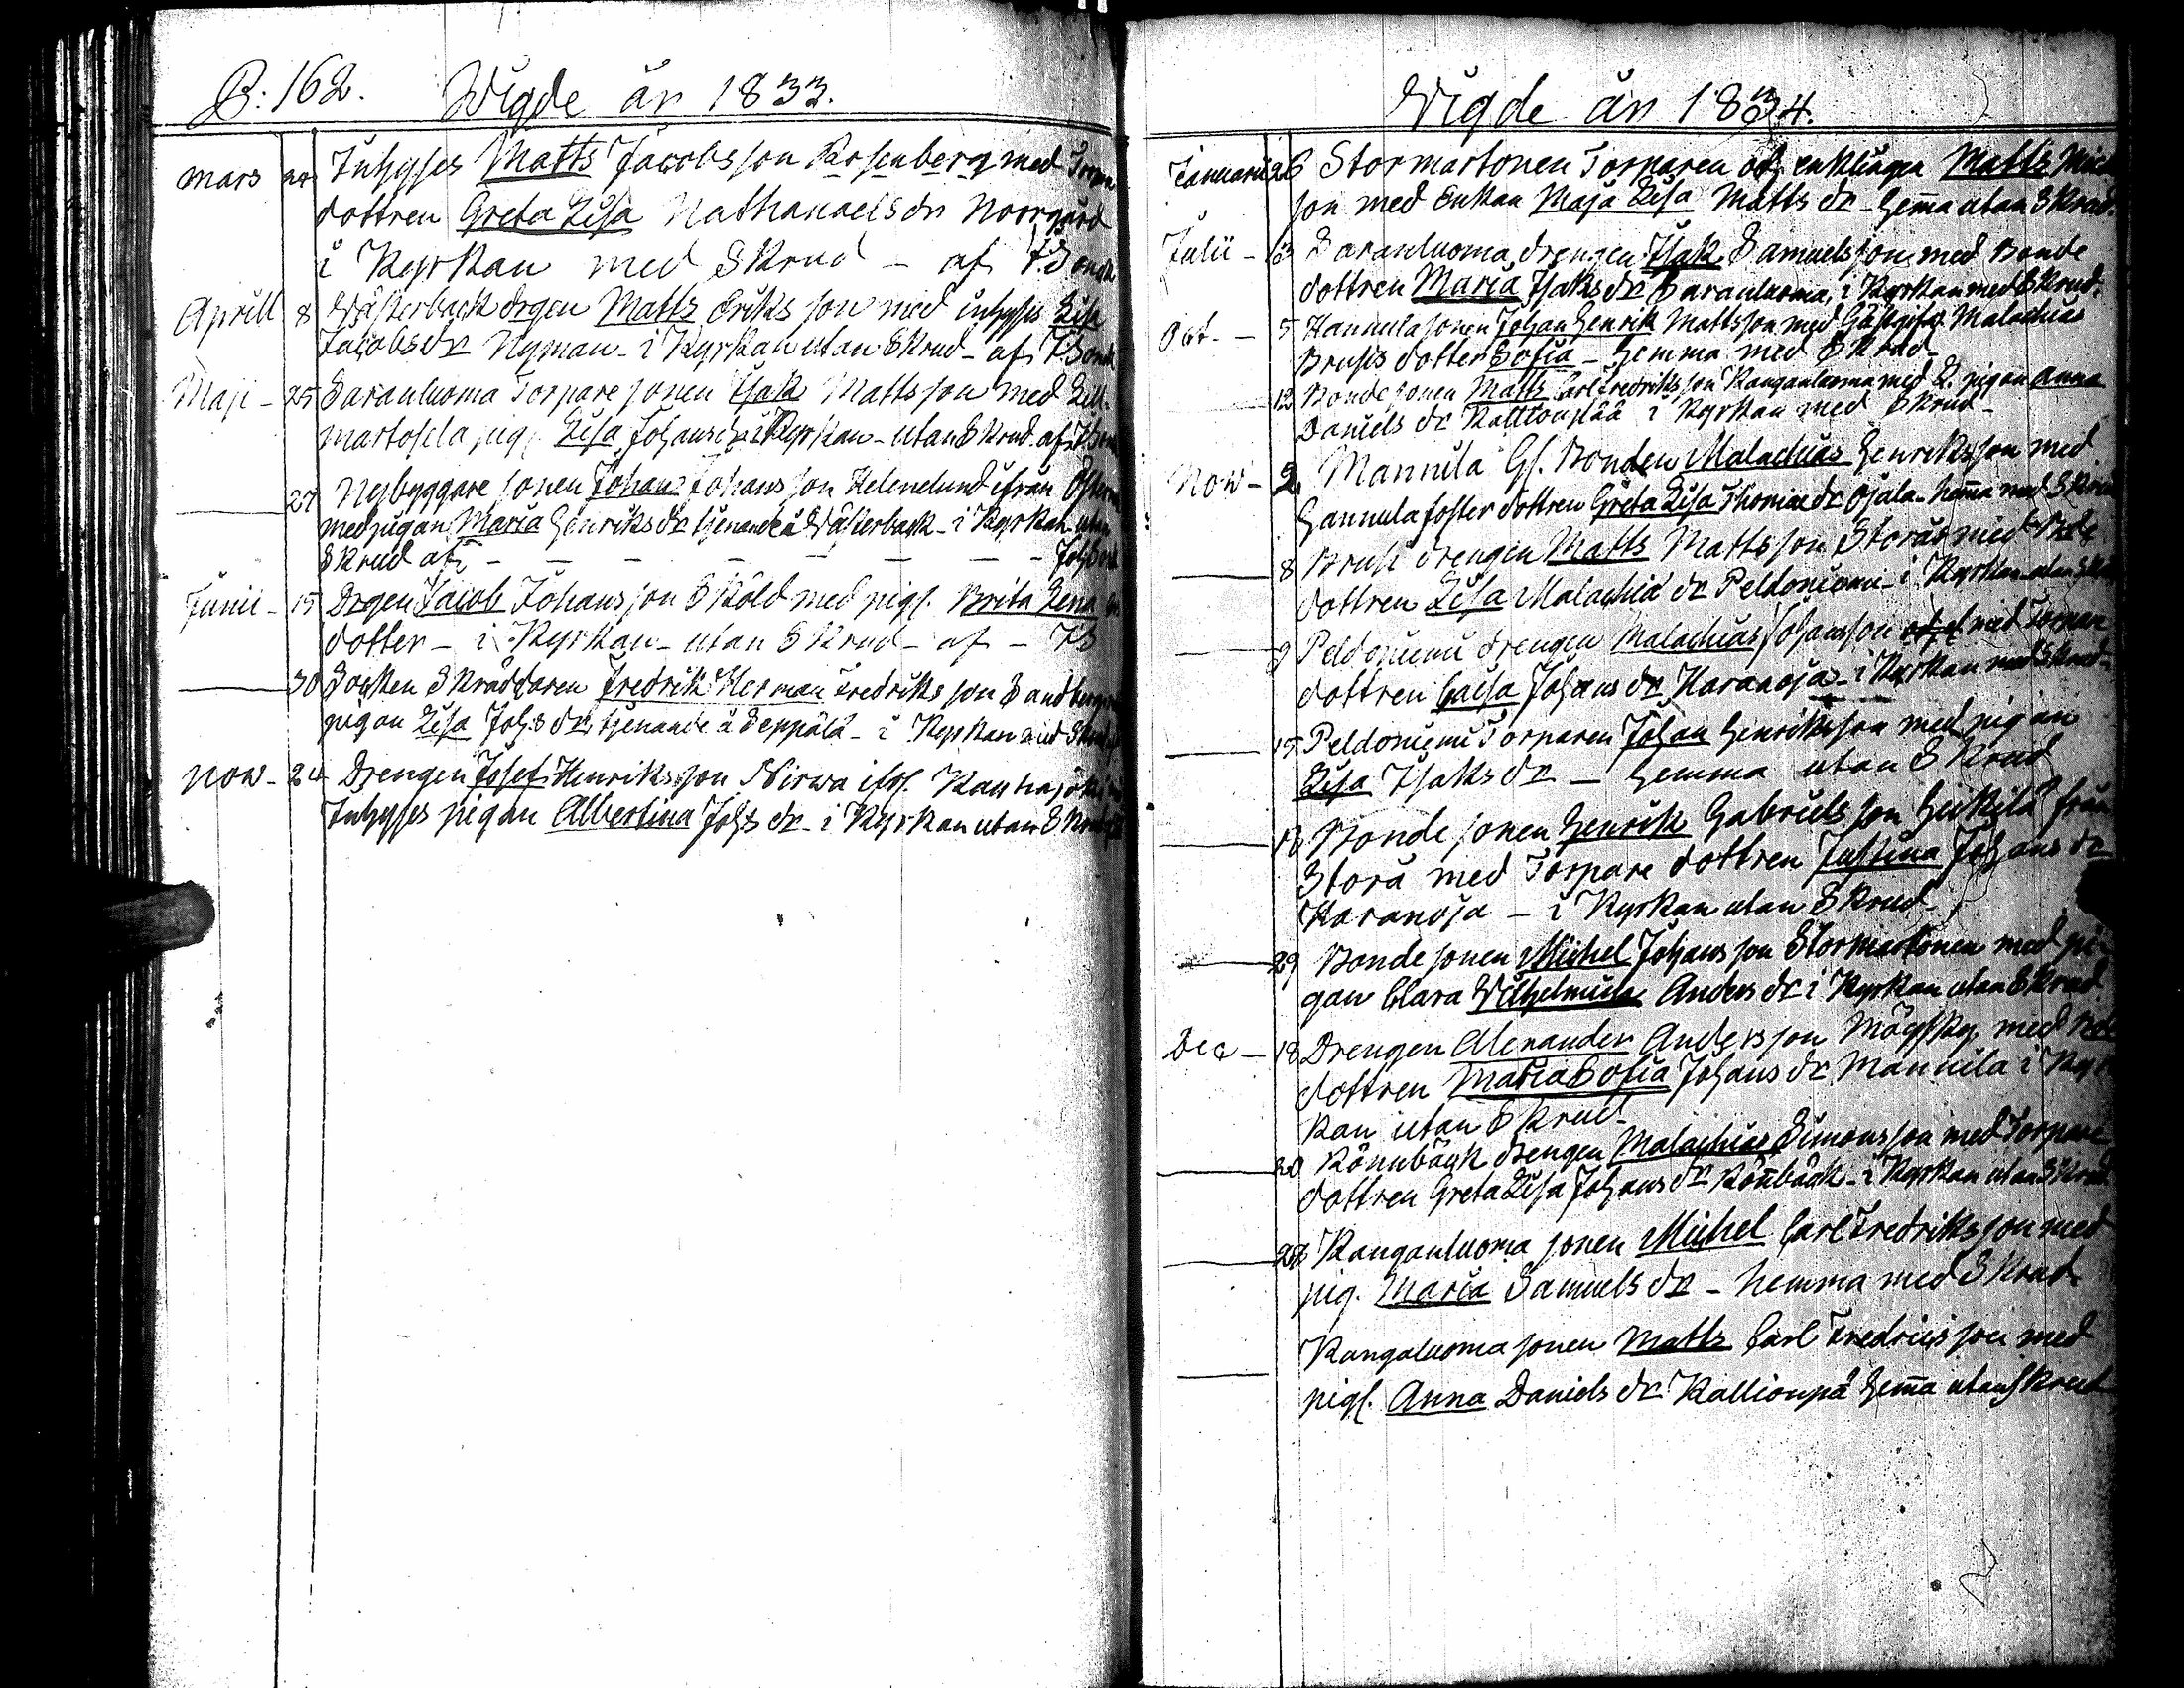 B: 162. Wigde år 1833.
mars Inhyses Matts Jacobsson Rosenberg med
dottren Greta Lisa Nathanaels dr Norrgård
i Kyrkan med Skrud - af
Aprill 8 Wästerback drgen Matts Eriks son med inhyses Lisa
Jacobs dr Nyman - i Kyrkan utan Skrud - af
Maji - 25 Saranluoma Torpare sonen Isak Matts son med
martosela pig. Lisa Johans dr i Kyrkan - utan Skrud. af
27 Nybyggare sonen Johan Johans son Helenelund ifrån
med pigan Maria Henriks dr tjenande å Wästerback - i Kyrkan utan
Skrud af - - - - - - -
Junii - 15 Drgen Jacob Johans son Sköld med pig. Brita Lena
dotter - i Kyrkan - utan Skrud - af -
30 Socken Skräddaren Fredrik Herman Fredriks son Sandberg
pigan Lisa Joh:s dr tjenande å Seppälä - i Kyrkan med
Now - 24 Drengen Josef Henriksson Nirwa
Inhyses pigan Albertina Joh:s dr - i Kyrkan utan
Wigde år 1834.
Januarii 26 Stormartonen Torparen och enklingen Matts
son med Enkan Maja Lisa Matts dr - hema utan Skrud.
Julii - 13 Saranluoma drengen Isak Samuels son med Bonde
dottren Maria Isaks dr Saranluoma, i Kyrkan med Skrud.
Oct. - 5 Hannula sonen Johan Henrik Matts son med Malachias
Brusis dotter Sofia - hemma med Skrud -
12 Bonde sonen Matts Carl Fredriks son Kanganluoma med pigan Anna
Daniels dr i Kyrkan med Skrud -
Now - 2 Mannila Bonden Malachias Henriksson med
Hannula foster dottren Greta Lisa Thomae dr Ojala - hema med
8 Brusi drengen Matts Matts son Storås med
dottren Lisa Malachiæ dr Peldoniemi - i Kyrkan utan
9 Peldoniemi drengen Malachias Johansson med Torpare
dottren Caisa Johans dr Haranoja - i Kyrkan med Skrud -
15 Peldoniemi Torparen Johan Henriksson med pigan
Lisa Isaks dr - hemma utan Skrud
Bonde sonen Henrik Gabriels son Heikkilä från
Storå med Torpare dottren Justina Johans dr
Haranoja - i Kyrkan utan Skrud -
29 Bonde sonen Michel Johans son Stormartonen med pi-
gan Clara Wilhelmina Anders dr i Kyrkan utan Skrud
Dec - 18 Drengen Alexander Anders son med
dottren Maria Sofia Johans dr Mannila i
kan utan Skrud -
20 Rönnbäck drengen Malachias Simons son med Torpare
dottren Greta Lisa Johans dr Rönbäck - i Kyrkan utan Skrud
28 Kanganluoma sonen Michel Carl Fredriks son med
pig. Maria Samuels dr - hemma med Skrud
Kangaluoma sonen Matts Carl Fredrics son med
pig. Anna Daniels dr Hema utan skrud